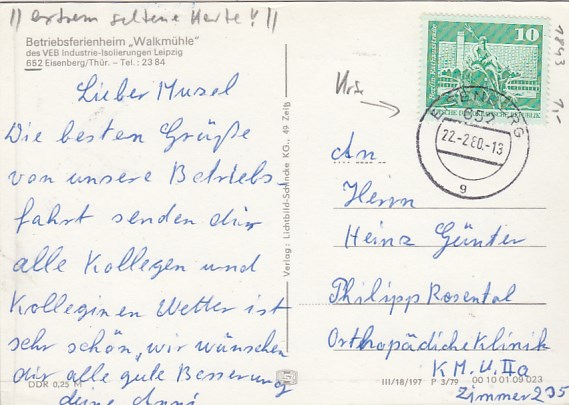 !! extrem seltene Karte!!!
Betriebsferienheim „Walkmühle"
des VEB Industrie-Isolierungen Leipzig
652 Eisenberg/Thür. – Tel.: 23 84
Lieber Musel
Die besten Grüße
von unsere Betriebs-
fahrt senden dir
alle Kollegen und
Kolleginen Wetter ist
sehr schön, wir wünschen
dir alle gute Besserung
deine Anni
DDR 0,25 M
Verlag: Lichtbild-Schincke KG., 49 Zeitz
10
Berlin, Rathausstraße
DEUTSCHE DEMOKRATISCHE REPUBLIK
1843
1,-
EISENBERG
652
22.-2.80.-13
g
An
Herrn
Heinz Günter
Philipp Rosental
Orthopädiche Klinik
K.M.U. IIa
Zimmer 235
III/18/197 P 3/79 00 10 01 09 023